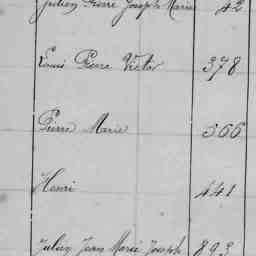 Julien Pierre Joseph Marie 42
Louis Pierre Victor 378
Pierre Marie 366
Henri 441
Julien Jean Marie Joseph 893